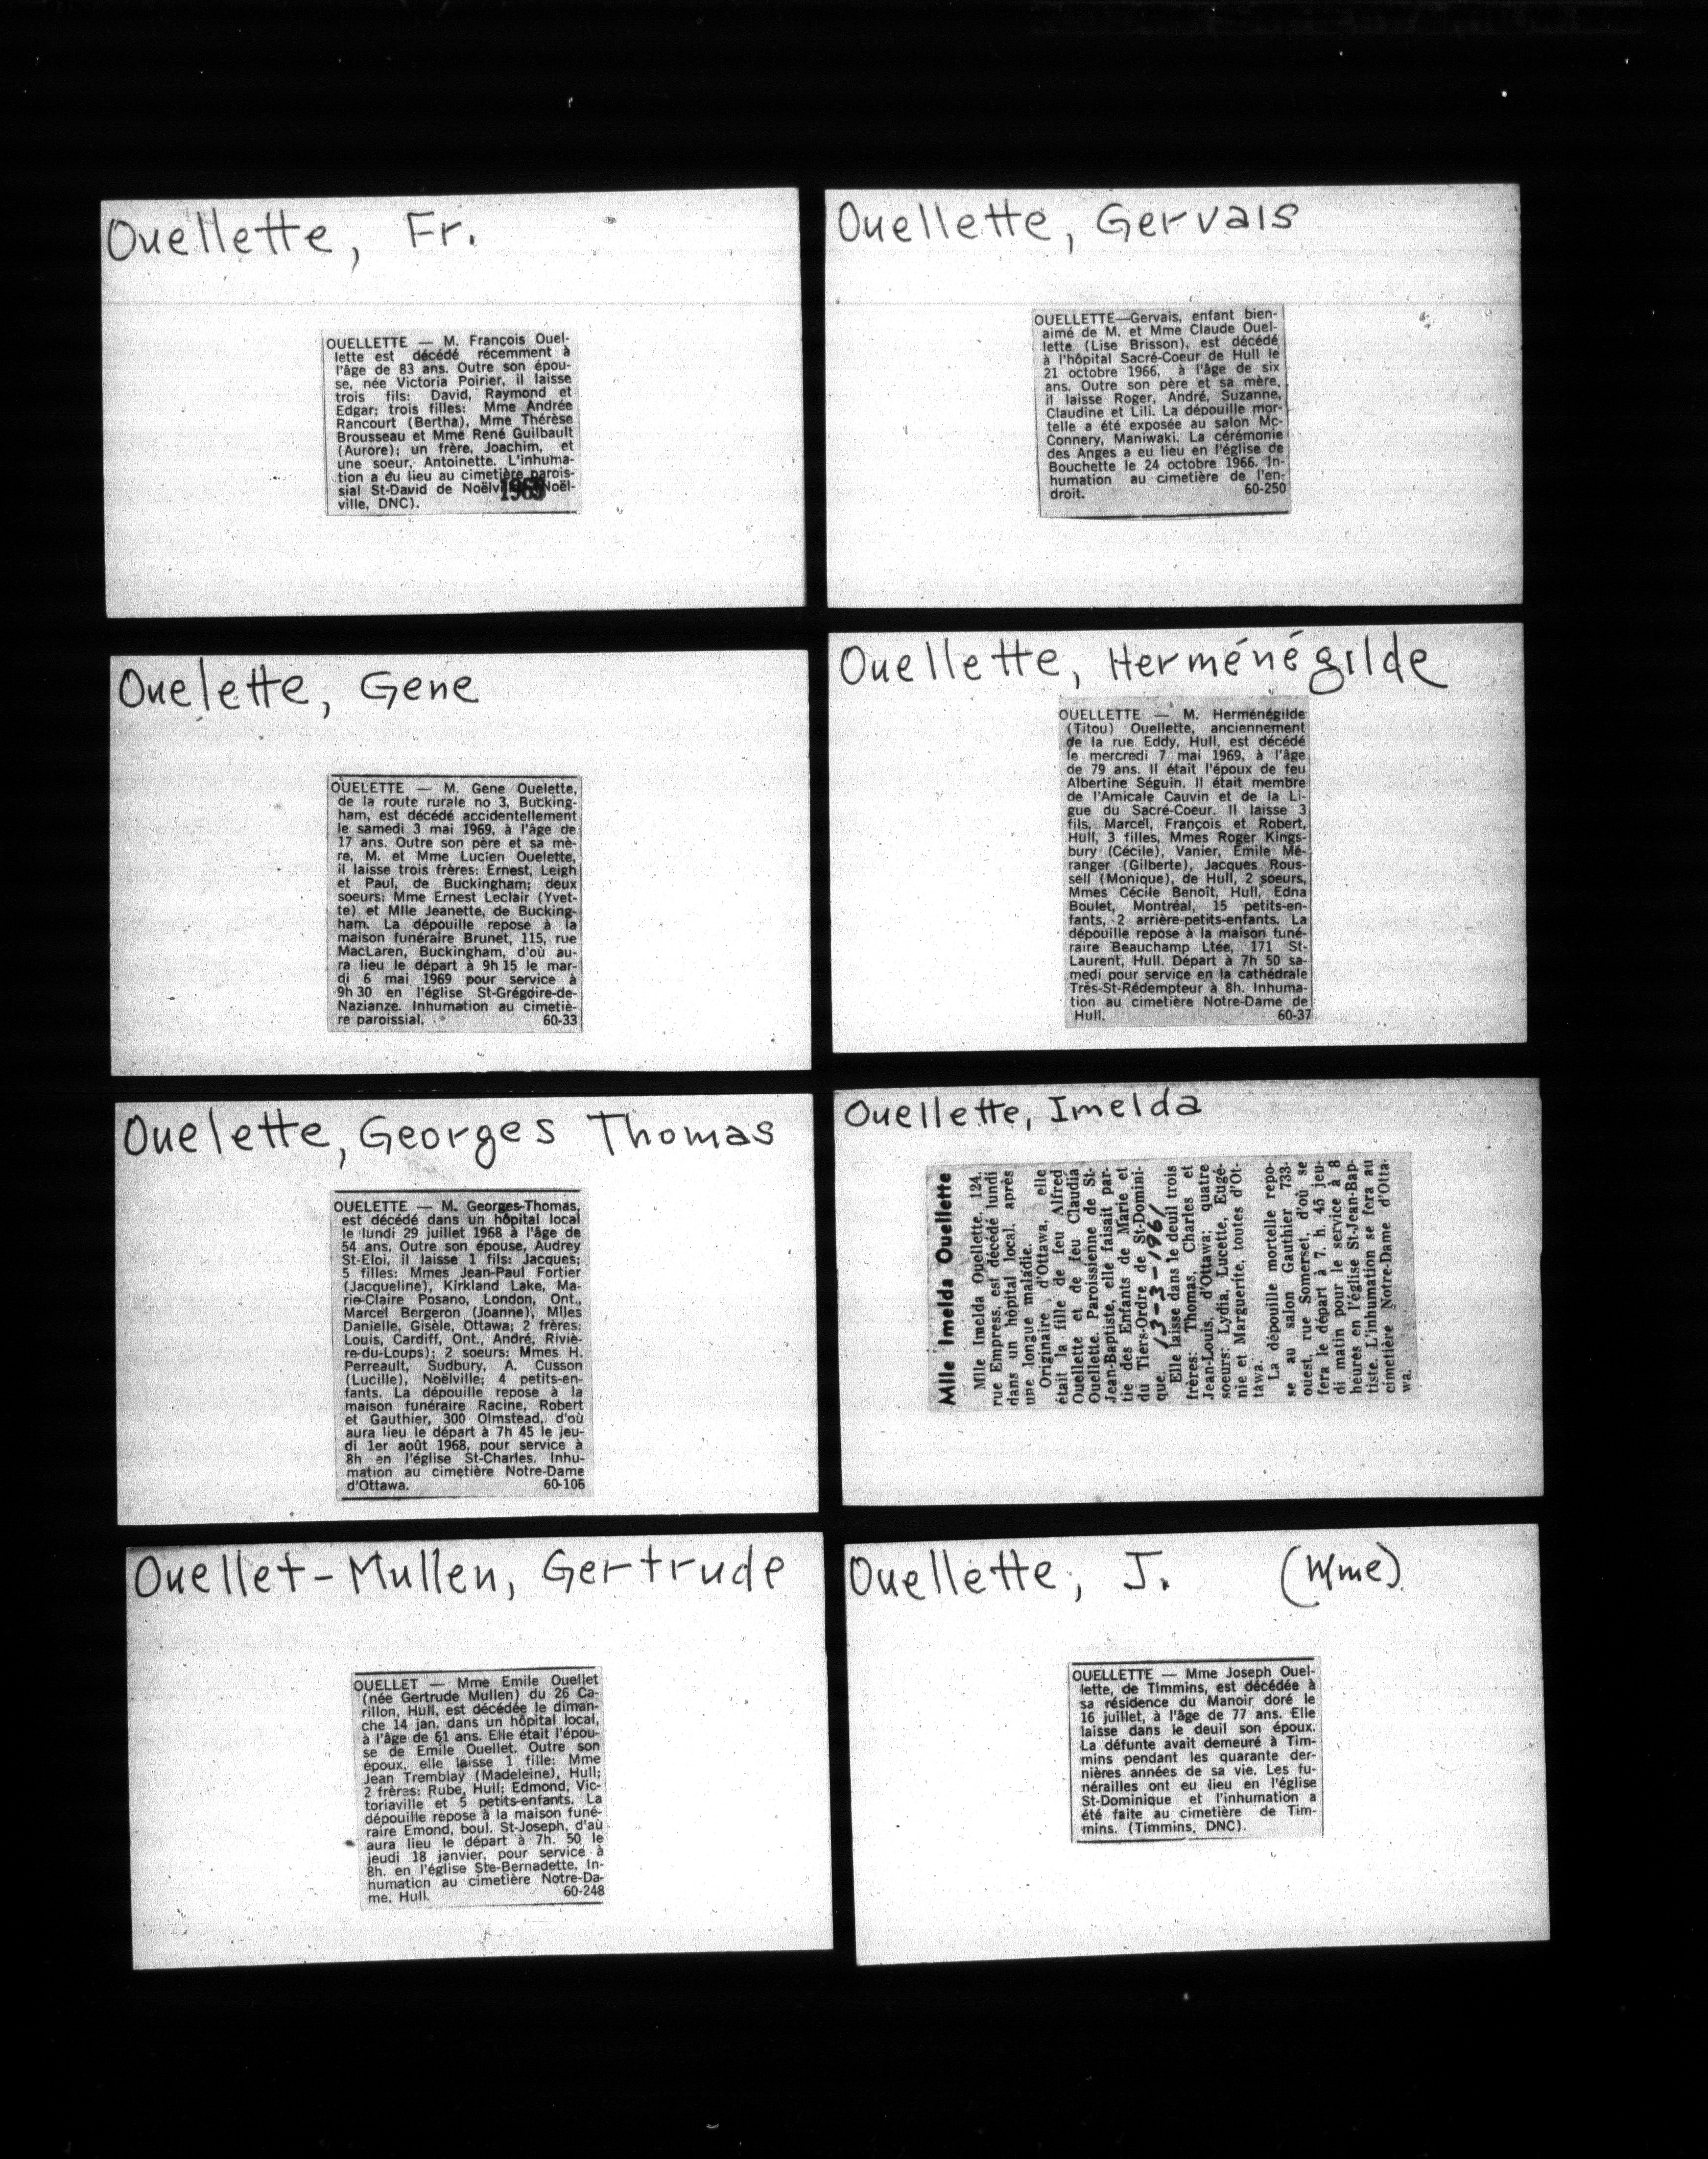 Ouellette, Fr.
OUELLETTE — M. François Ouel-
lette est décédé récemment à
l'âge de 83 ans. Outre son épou-
se, née Victoria Poirier, il laisse
trois fils: David, Raymond et
Edgar; trois filles: Mme Andrée
Rancourt (Bertha), Mme Thérèse
Brousseau et Mme René Guilbault
(Aurore); un frère, Joachim, et
une soeur, Antoinette. L'inhuma-
tion a eu lieu au cimetière parois-
sial St-David de Noëlville. (Noël-
ville, DNC).
Ouellette, Gervais
OUELLETTE—Gervais, enfant bien-
aimé de M. et Mme Claude Ouel-
lette (Lise Brisson), est décédé
à l'hôpital Sacré-Coeur de Hull le
21 octobre 1966, à l'âge de six
ans. Outre son père et sa mère,
il laisse Roger, André, Suzanne,
Claudine et Lili. La dépouille mor-
telle a été exposée au salon Mc-
Connery, Maniwaki. La cérémonie
des Anges a eu lieu en l'église de
Bouchette le 24 octobre 1966. In-
humation au cimetière de l'en-
droit. 60-250
Ouelette, Gene
OUELETTE — M. Gene Ouelette,
de la route rurale no 3, Bucking-
ham, est décédé accidentellement
le samedi 3 mai 1969, à l'âge de
17 ans. Outre son père et sa mè-
re, M. et Mme Lucien Ouelette,
il laisse trois frères: Ernest, Leigh
et Paul, de Buckingham; deux
soeurs: Mme Ernest Leclair (Yvet-
te) et Mlle Jeanette, de Bucking-
ham. La dépouille repose à la
maison funéraire Brunet, 115, rue
MacLaren, Buckingham, d'où au-
ra lieu le départ à 9h 15 le mar-
di 6 mai 1969 pour service à
9h 30 en l'église St-Grégoire-de-
Nazianze. Inhumation au cimetiè-
re paroissial. 60-33
Ouellette, Herménégilde
OUELLETTE — M. Herménégilde
(Titou) Ouellette, anciennement
de la rue Eddy, Hull, est décédé
le mercredi 7 mai 1969, à l'âge
de 79 ans. Il était l'époux de feu
Albertine Séguin. Il était membre
de l'Amicale Cauvin et de la Li-
gue du Sacré-Coeur. Il laisse 3
fils, Marcel, François et Robert,
Hull, 3 filles, Mmes Roger Kings-
bury (Cécile), Vanier, Emile Mé-
ranger (Gilberte), Jacques Rous-
sell (Monique), de Hull, 2 soeurs,
Mmes Cécile Benoît, Hull, Edna
Boulet, Montréal, 15 petits-en-
fants, 2 arrière-petits-enfants. La
dépouille repose à la maison funé-
raire Beauchamp Ltée, 171 St-
Laurent, Hull. Départ à 7h 50 sa-
medi pour service en la cathédrale
Très-St-Rédempteur à 8h. Inhuma-
tion au cimetière Notre-Dame de
Hull. 60-37
Ouelette, Georges Thomas
OUELLETTE — M. Georges-Thomas,
est décédé dans un hôpital local
le lundi 29 juillet 1968 à l'âge de
54 ans. Outre son épouse, Audrey
St-Eloi, il laisse 1 fils: Jacques;
5 filles: Mmes Jean-Paul Fortier
(Jacqueline), Kirkland Lake, Ma-
rie-Claire Posano, London, Ont.,
Marcel Bergeron (Joanne), Mlles
Danielle, Gisèle, Ottawa; 2 frères:
Louis, Cardiff, Ont., André, Riviè-
re-du-Loups); 2 soeurs: Mmes H.
Perreault, Sudbury, A. Cusson
(Lucille), Noëlville; 4 petits-en-
fants. La dépouille repose à la
maison funéraire Racine, Robert
et Gauthier, 300 Olmstead, d'où
aura lieu le départ à 7h 45 le jeu-
di 1er août 1968, pour service à
8h en l'église St-Charles. Inhu-
mation au cimetière Notre-Dame
d'Ottawa. 60-106
Ouellette, Imelda
Mlle Imelda Ouellette
Mlle Imelda Ouellette, 124,
rue Empress, est décédé lundi
dans un hôpital local, après
une longue maladie.
Originaire d'Ottawa, elle
était la fille de feu Alfred
Ouellette et de feu Claudia
Ouellette. Paroissienne de St-
Jean-Baptiste, elle faisait par-
tie des Enfants de Marie et
du Tiers-Ordre de St-Domini-
que. 13-3-1961
Elle laisse dans le deuil trois
frères: Thomas, Charles et
Jean-Louis, d'Ottawa; quatre
soeurs: Lydia, Lucette, Eugé-
nie et Marguerite, toutes d'Ot-
tawa.
La dépouille mortelle repo-
se au salon Gauthier 733-
ouest, rue Somerset, d'où se
fera le départ à 7. h. 45 jeu-
di matin pour le service à 8
heures en l'église St-Jean-Bap-
tiste. L'inhumation se fera au
cimetière Notre-Dame d'Otta-
wa.
Ouellet-Mullen, Gertrude
OUELLET — Mme Emile Ouellet
(née Gertrude Mullen) du 26 Ca-
rillon, Hull, est décédée le diman-
che 14 jan. dans un hôpital local,
à l'âge de 61 ans. Elle était l'épou-
se de Emile Ouellet. Outre son
époux, elle laisse 1 fille: Mme
Jean Tremblay (Madeleine), Hull;
2 frères: Rube, Hull; Edmond, Vic-
toriaville et 5 petits-enfants. La
dépouille repose à la maison funé-
raire Emond, boul. St-Joseph, d'aù
aura lieu le départ à 7h. 50 le
jeudi 18 janvier, pour service à
8h. en l'église Ste-Bernadette, In-
humation au cimetière Notre-Da-
me, Hull. 60-248
Ouellette, J. (Mme)
OUELLETTE — Mme Joseph Ouel-
lette, de Timmins, est décédée à
sa résidence du Manoir doré le
16 juillet, à l'âge de 77 ans. Elle
laisse dans le deuil son époux.
La défunte avait demeuré à Tim-
mins pendant les quarante der-
nières années de sa vie. Les fu-
nérailles ont eu lieu en l'église
St-Dominique et l'inhumation a
été faite au cimetière de Tim-
mins. (Timmins, DNC).